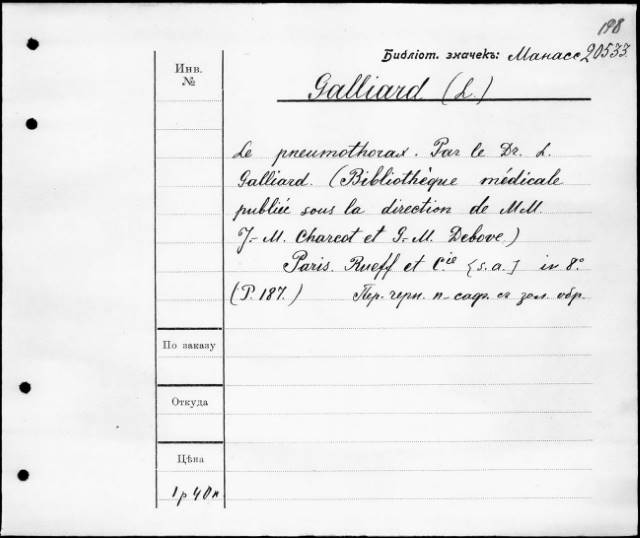 198
Библіот. значекъ: Манасс 20533.
Инв.
№
Galliard (L.)
Le pneumothorax. Par le Dr. L.
Galliard. (Bibliothèque médicale
publiée sous la direction de MM.
J.-M. Charcot et G.-M. Debove.)
Paris. Rueff et C.ie [s.a.] in 8.°
(P. 187.) Пер. черн. п-саф. съ зол. обр.
По заказу
Откуда
Цѣна
1 р 40 к